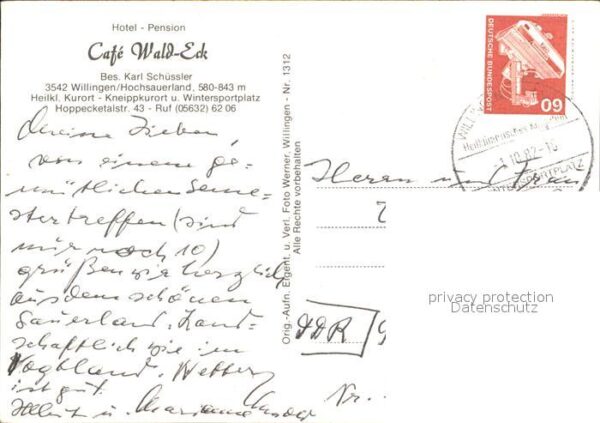 Hotel - Pension
Café Wald-Eck
Bes. Karl Schüssler
3542 Willingen/Hochsauerland, 580-843 m
Heilkl. Kurort - Kneippkurort u. Wintersportplatz
Hoppecketalstr. 43 - Ruf (05632) 62 06
Meine Lieben,
von einem ge=
mütlichen Seme=
stertreffen (sind
nur noch 10)
grüßen wir herzlich
aus dem schönen
Sauerland. Land=
schaftlich wie im
Vogtland. Wetter
ist gut.
u. Marianne
Orig.-Aufn. Eigent. u. Verl. Foto Werner, Willingen - Nr. 1312
Alle Rechte vorbehalten
DEUTSCHE BUNDESPOST
60
WILLIN
Heilklimatischer
-1.10.82-16
Herrn und Frau
DDR
Nr.
privacy protection
Datenschutz